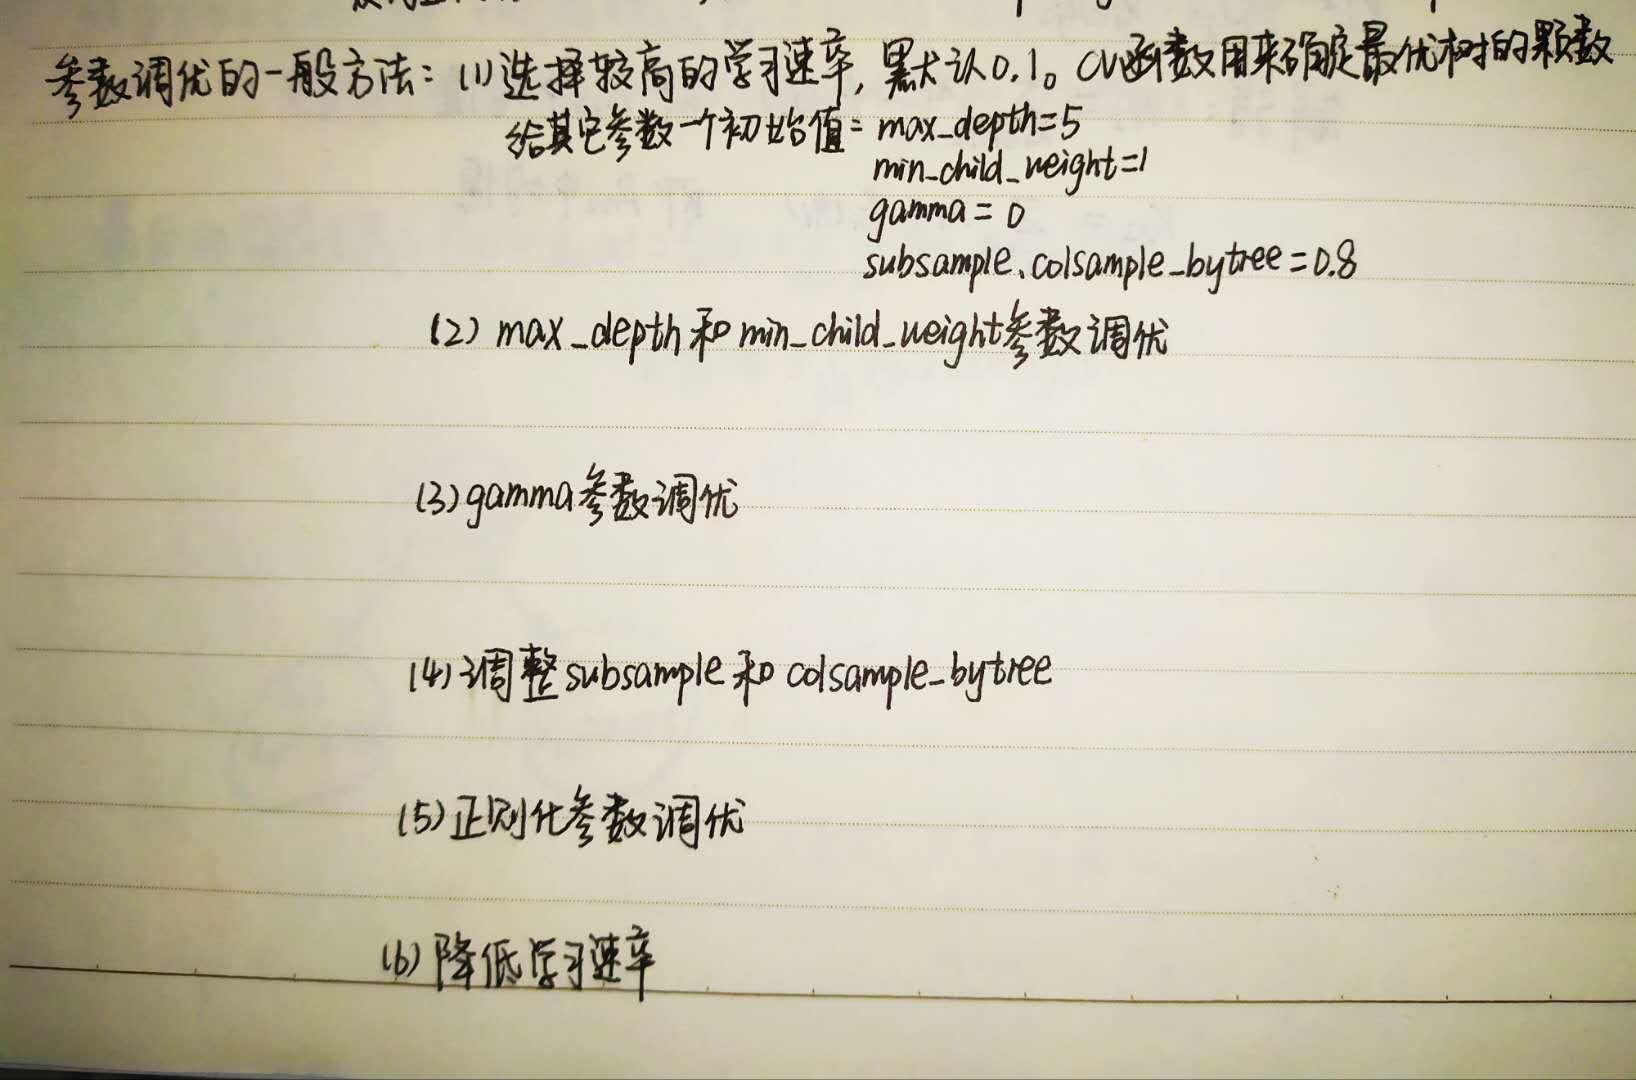 参数调优的一般方法：(1)选择较高的学习速率，默认0.1。CV函数用来确定最优树的颗数
给其它参数一个初始值：max_depth=5
min_child_weight=1
gamma=0
subsample、colsample_bytree=0.8
(2) max_depth和min_child_weight参数调优
(3)gamma参数调优
(4)调整subsample和colsample_bytree
(5)正则化参数调优
(6)降低学习速率